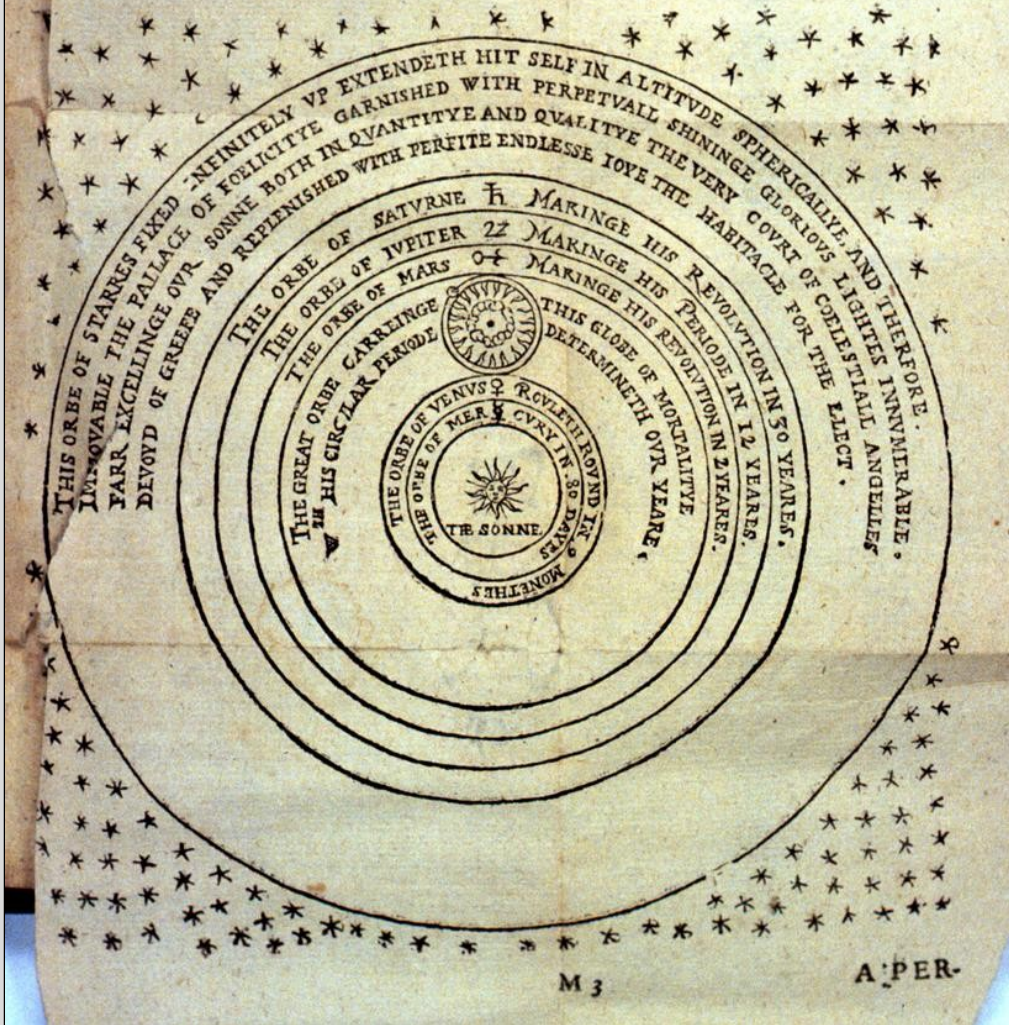 THIS ORBE OF STARRES FIXED INFINITELY VP EXTENDETH HIT SELF IN ALTITVDE SPHERICALLYE, AND THERFORE.
IMMOVABLE THE PALLACE OF FOELICITYE GARNISHED WITH PERPETVALL SHININGE GLORIOVS LIGHTES INNVMERABLE.
FARR EXCELLINGE OVR SONNE BOTH IN QVANTITYE AND QVALITYE THE VERY COVRT OF COELESTIALL ANGELLES
DEVOYD OF GREEFE AND REPLENISHED WITH PERFITE ENDLESSE IOYE THE HABITACLE FOR THE ELECT.
THE ORBE OF SATVRNE ♄ MAKINGE HIS REVOLVTION IN 30 YEARES.
THE ORBE OF IVPITER ♃ MAKINGE HIS PERIODE IN 12 YEARES.
THE ORBE OF MARS ♂ MAKINGE HIS REVOLVTION IN 2 YEARES.
THE GREAT ORBE CARREINGE THIS GLOBE OF MORTALITYE
HIS CIRCVLAR PERIODE DETERMINETH OVR YEARE.
THE ORBE OF VENVS ♀ ROVLETH ROVND IN 9 MONETHES
THE ORBE OF MER ☿ CVRY IN 80 DAYES
THE SONNE
M 3
A PER-